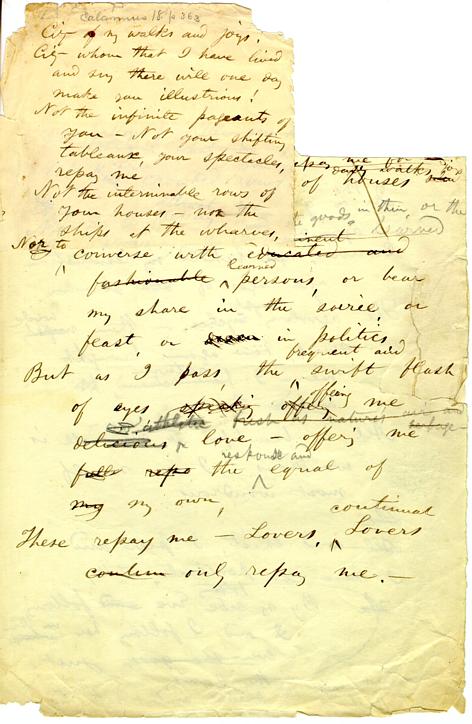 Calamus 18. p 363
City of my walks and joys!
City whom that I have lived
and sung there will one day
make you illustrious!
Not the infinite pageants of
you — Not your shifting
tableaux, your spectacles,
repay me
Not the interminable rows of
your houses — nor the
ships at the wharves,
of houses
goods, in them, or the
learned
Nor to converse with educated and
fashionable learned persons, or bear
my share in the soirée or
feast, or in politics,
But as I pass, the frequent and swift flash
of eyes speaking offering offering me
athletic fresh as nature's air and
delicious love — offering me
fully repa response and the equal of
my my own,
These repay me — Lovers, continual Lovers
continu only repay me. —